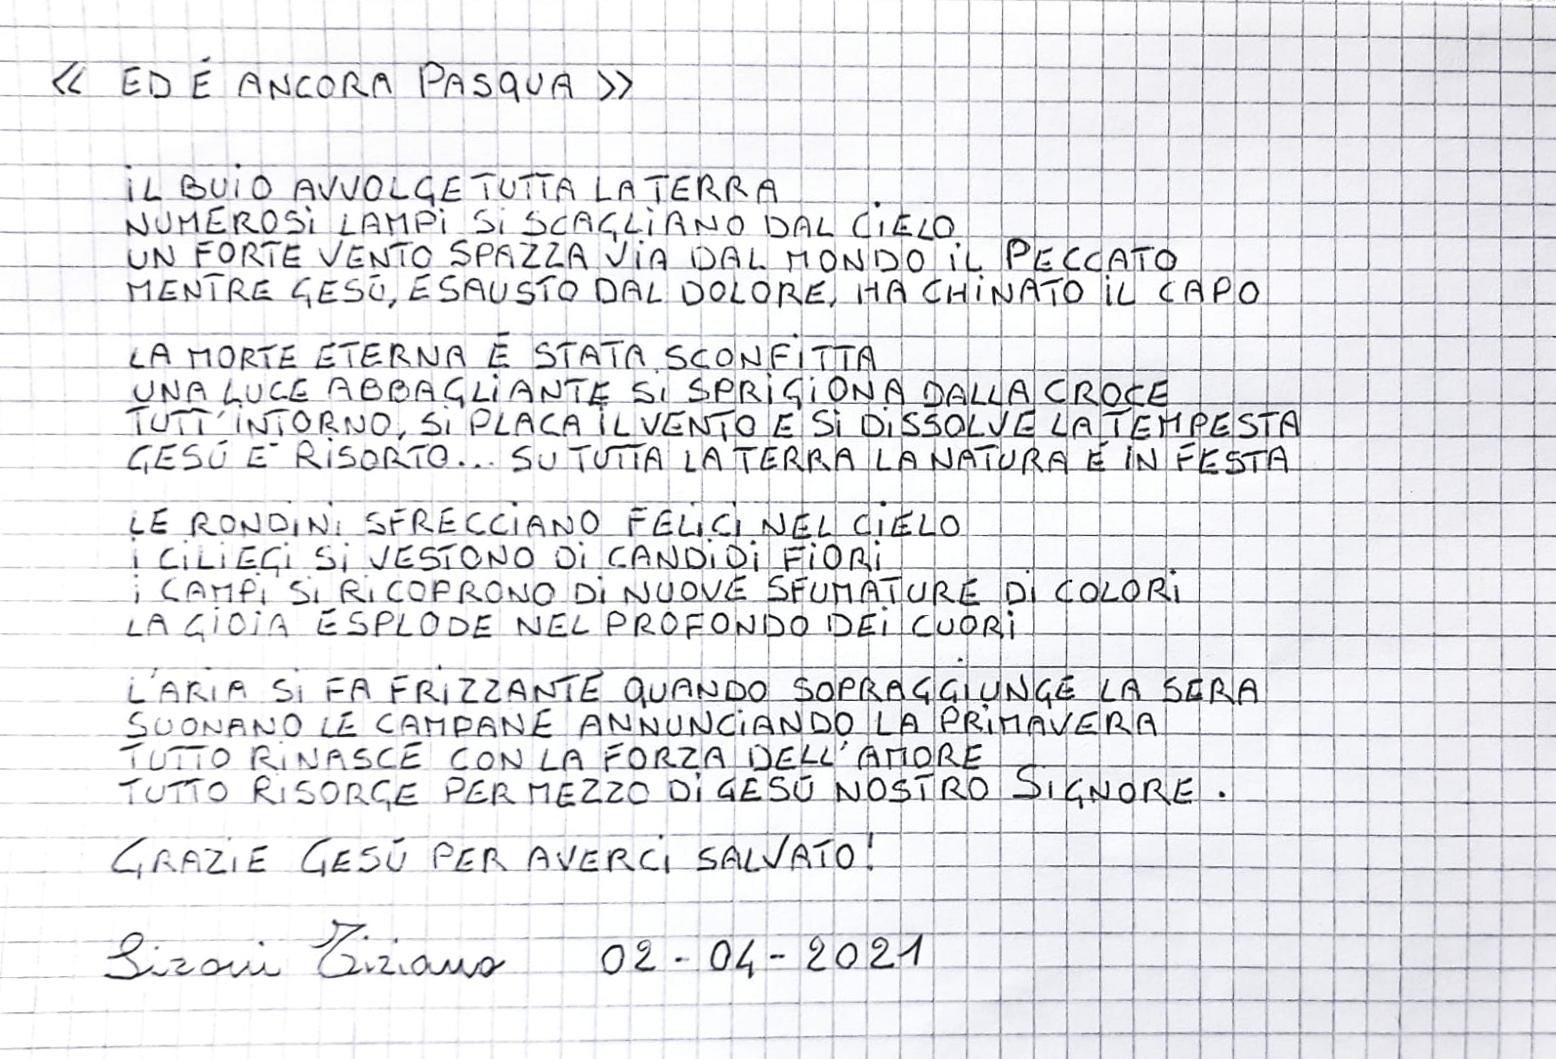 « ED É ANCORA PASQUA »
IL BUIO AVVOLGE TUTTA LA TERRA
NUMEROSI LAMPI SI SCAGLIANO DAL CIELO
UN FORTE VENTO SPAZZA VIA DAL MONDO IL PECCATO
MENTRE GESÚ, ESAUSTO DAL DOLORE, HA CHINATO IL CAPO
LA MORTE ETERNA É STATA SCONFITTA
UNA LUCE ABBAGLIANTE SI SPRIGIONA DALLA CROCE
TUTT'INTORNO, SI PLACA IL VENTO E SI DISSOLVE LA TEMPESTA
GESÚ E' RISORTO... SU TUTTA LA TERRA LA NATURA É IN FESTA
LE RONDINI SFRECCIANO FELICI NEL CIELO
I CILIEGI SI VESTONO DI CANDIDI FIORI
I CAMPI SI RICOPRONO DI NUOVE SFUMATURE DI COLORI
LA GIOIA ESPLODE NEL PROFONDO DEI CUORI
L'ARIA SI FA FRIZZANTE QUANDO SOPRAGGIUNGE LA SERA
SUONANO LE CAMPANE ANNUNCIANDO LA PRIMAVERA
TUTTO RINASCE CON LA FORZA DELL'AMORE
TUTTO RISORGE PER MEZZO DI GESÚ NOSTRO SIGNORE.
GRAZIE GESÚ PER AVERCI SALVATO!
Sironi Tiziano 02-04-2021